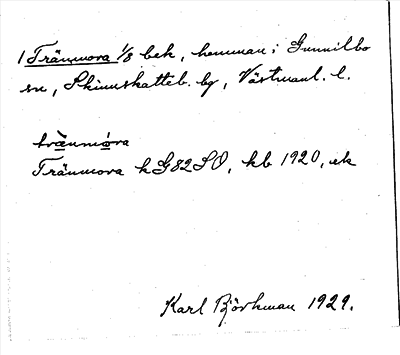 1 Tränmora 1/8 bek, hemman i Gunnilbo
sn, Skinnskatteb. bg, Västmanl. l.
trä̀nmóra
Tränmora k G82SO, kb 1920, ek
Karl Björkman 1929.